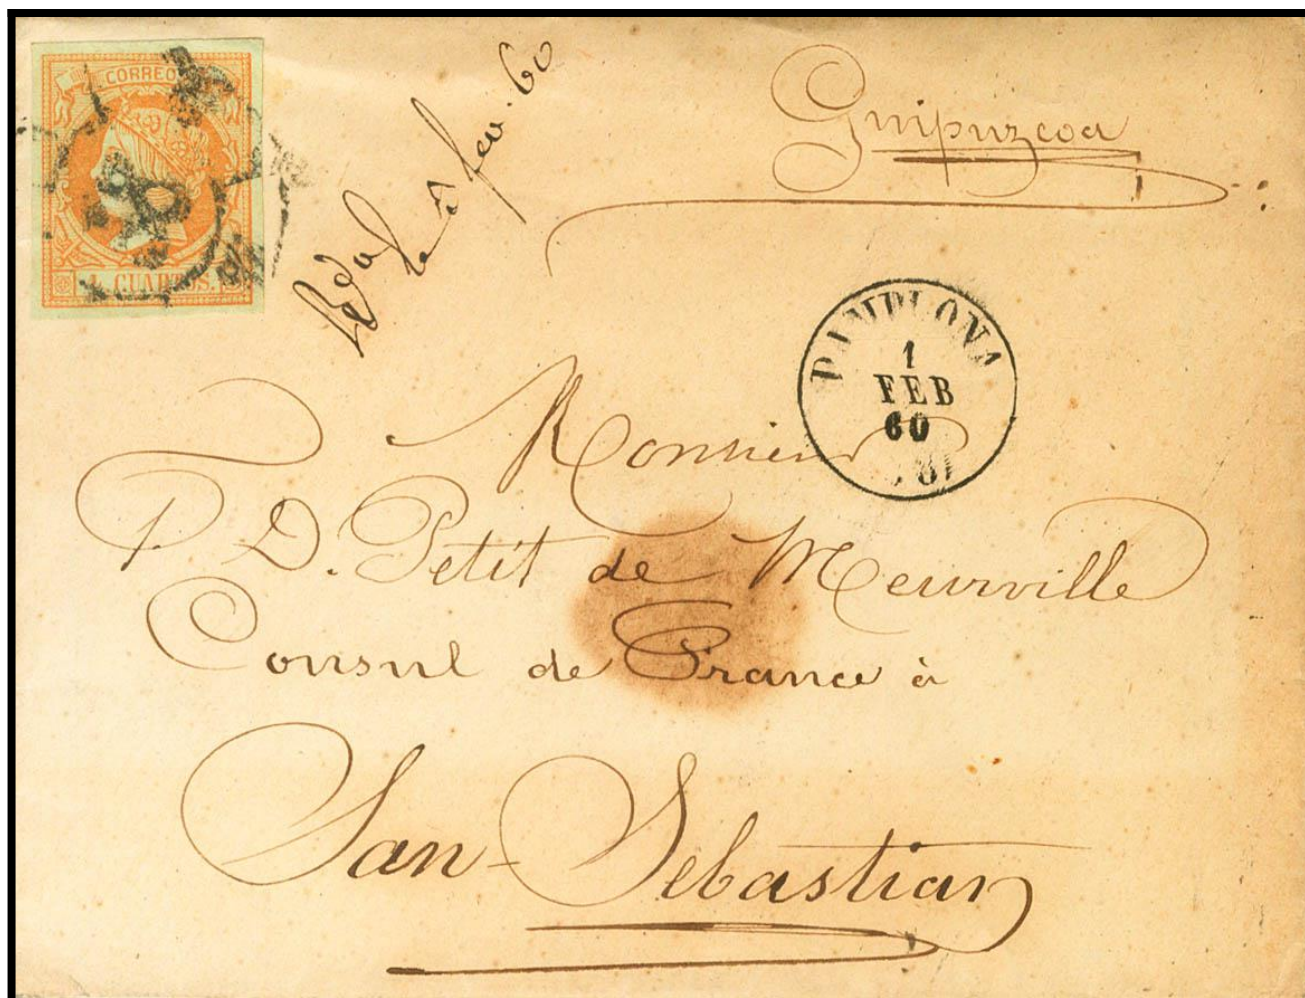 CORREO
4 CUARTOS.
le 5 fev. 60
Guipuzcoa
PAMPLONA
1
FEB
60
Monsieur
D. Petit de Meurville
Consul de France à
San-Sebastian